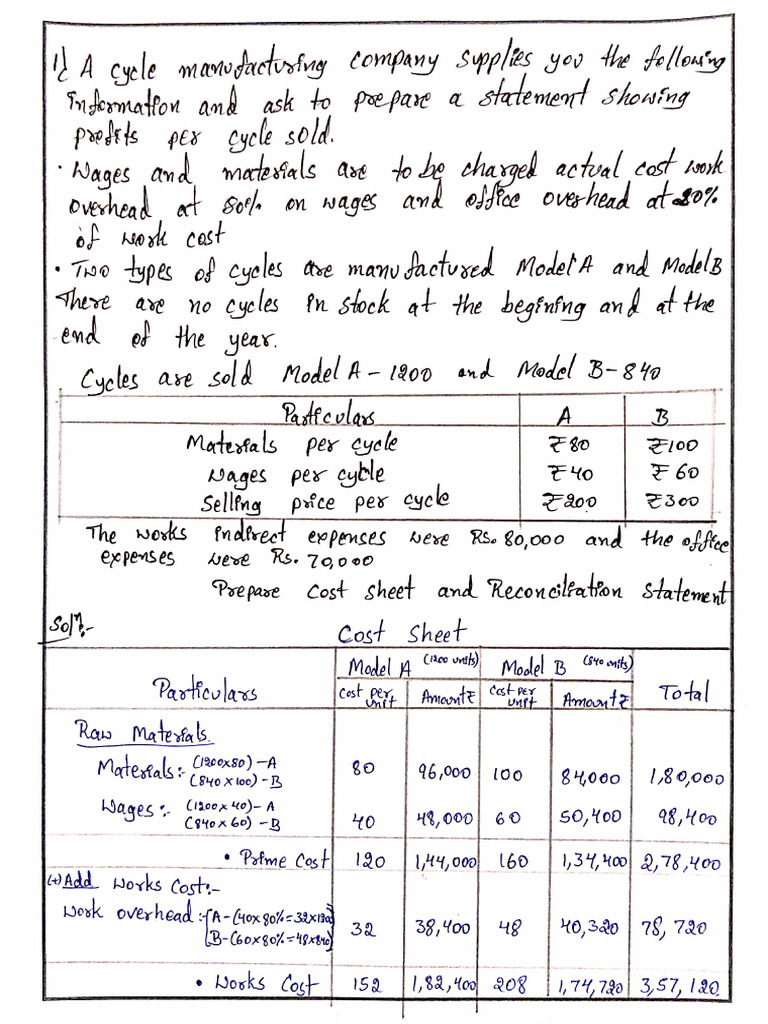 1) A cycle manufacturing company supplies you the following
information and ask to prepare a statement showing
profits per cycle sold.
· Wages and materials are to be charged actual cost work
overhead at 80% on wages and office overhead at 20%
of work cost
· Two types of cycles are manufactured Model A and Model B
There are no cycles in stock at the begining and at the
end of the year.
Cycles are sold Model A - 1200 and Model B - 840
Particulars A B
Materials per cycle ₹80 ₹100
Wages per cycle ₹40 ₹60
Selling price per cycle ₹200 ₹300
The works indirect expenses were Rs. 80,000 and the office
expenses were Rs. 70,000
Prepare cost sheet and Reconciliation Statement
Soln:-
Cost Sheet
Particulars Model A (1200 units) Model B (840 units) Total
Cost per unit Amount₹ Cost per unit Amount₹
Raw Materials
Materials:- (1200x80) - A (840x100) - B 80 96,000 100 84,000 1,80,000
Wages:- (1200x40) - A (840x60) - B 40 48,000 60 50,400 98,400
· Prime Cost 120 1,44,000 160 1,34,400 2,78,400
(+) Add Works Cost:-
Work overhead:- [A - (40x80%=32x1200) [B - (60x80%=48x840) 32 38,400 48 40,320 78,720
· Works Cost 152 1,82,400 208 1,74,720 3,57,120